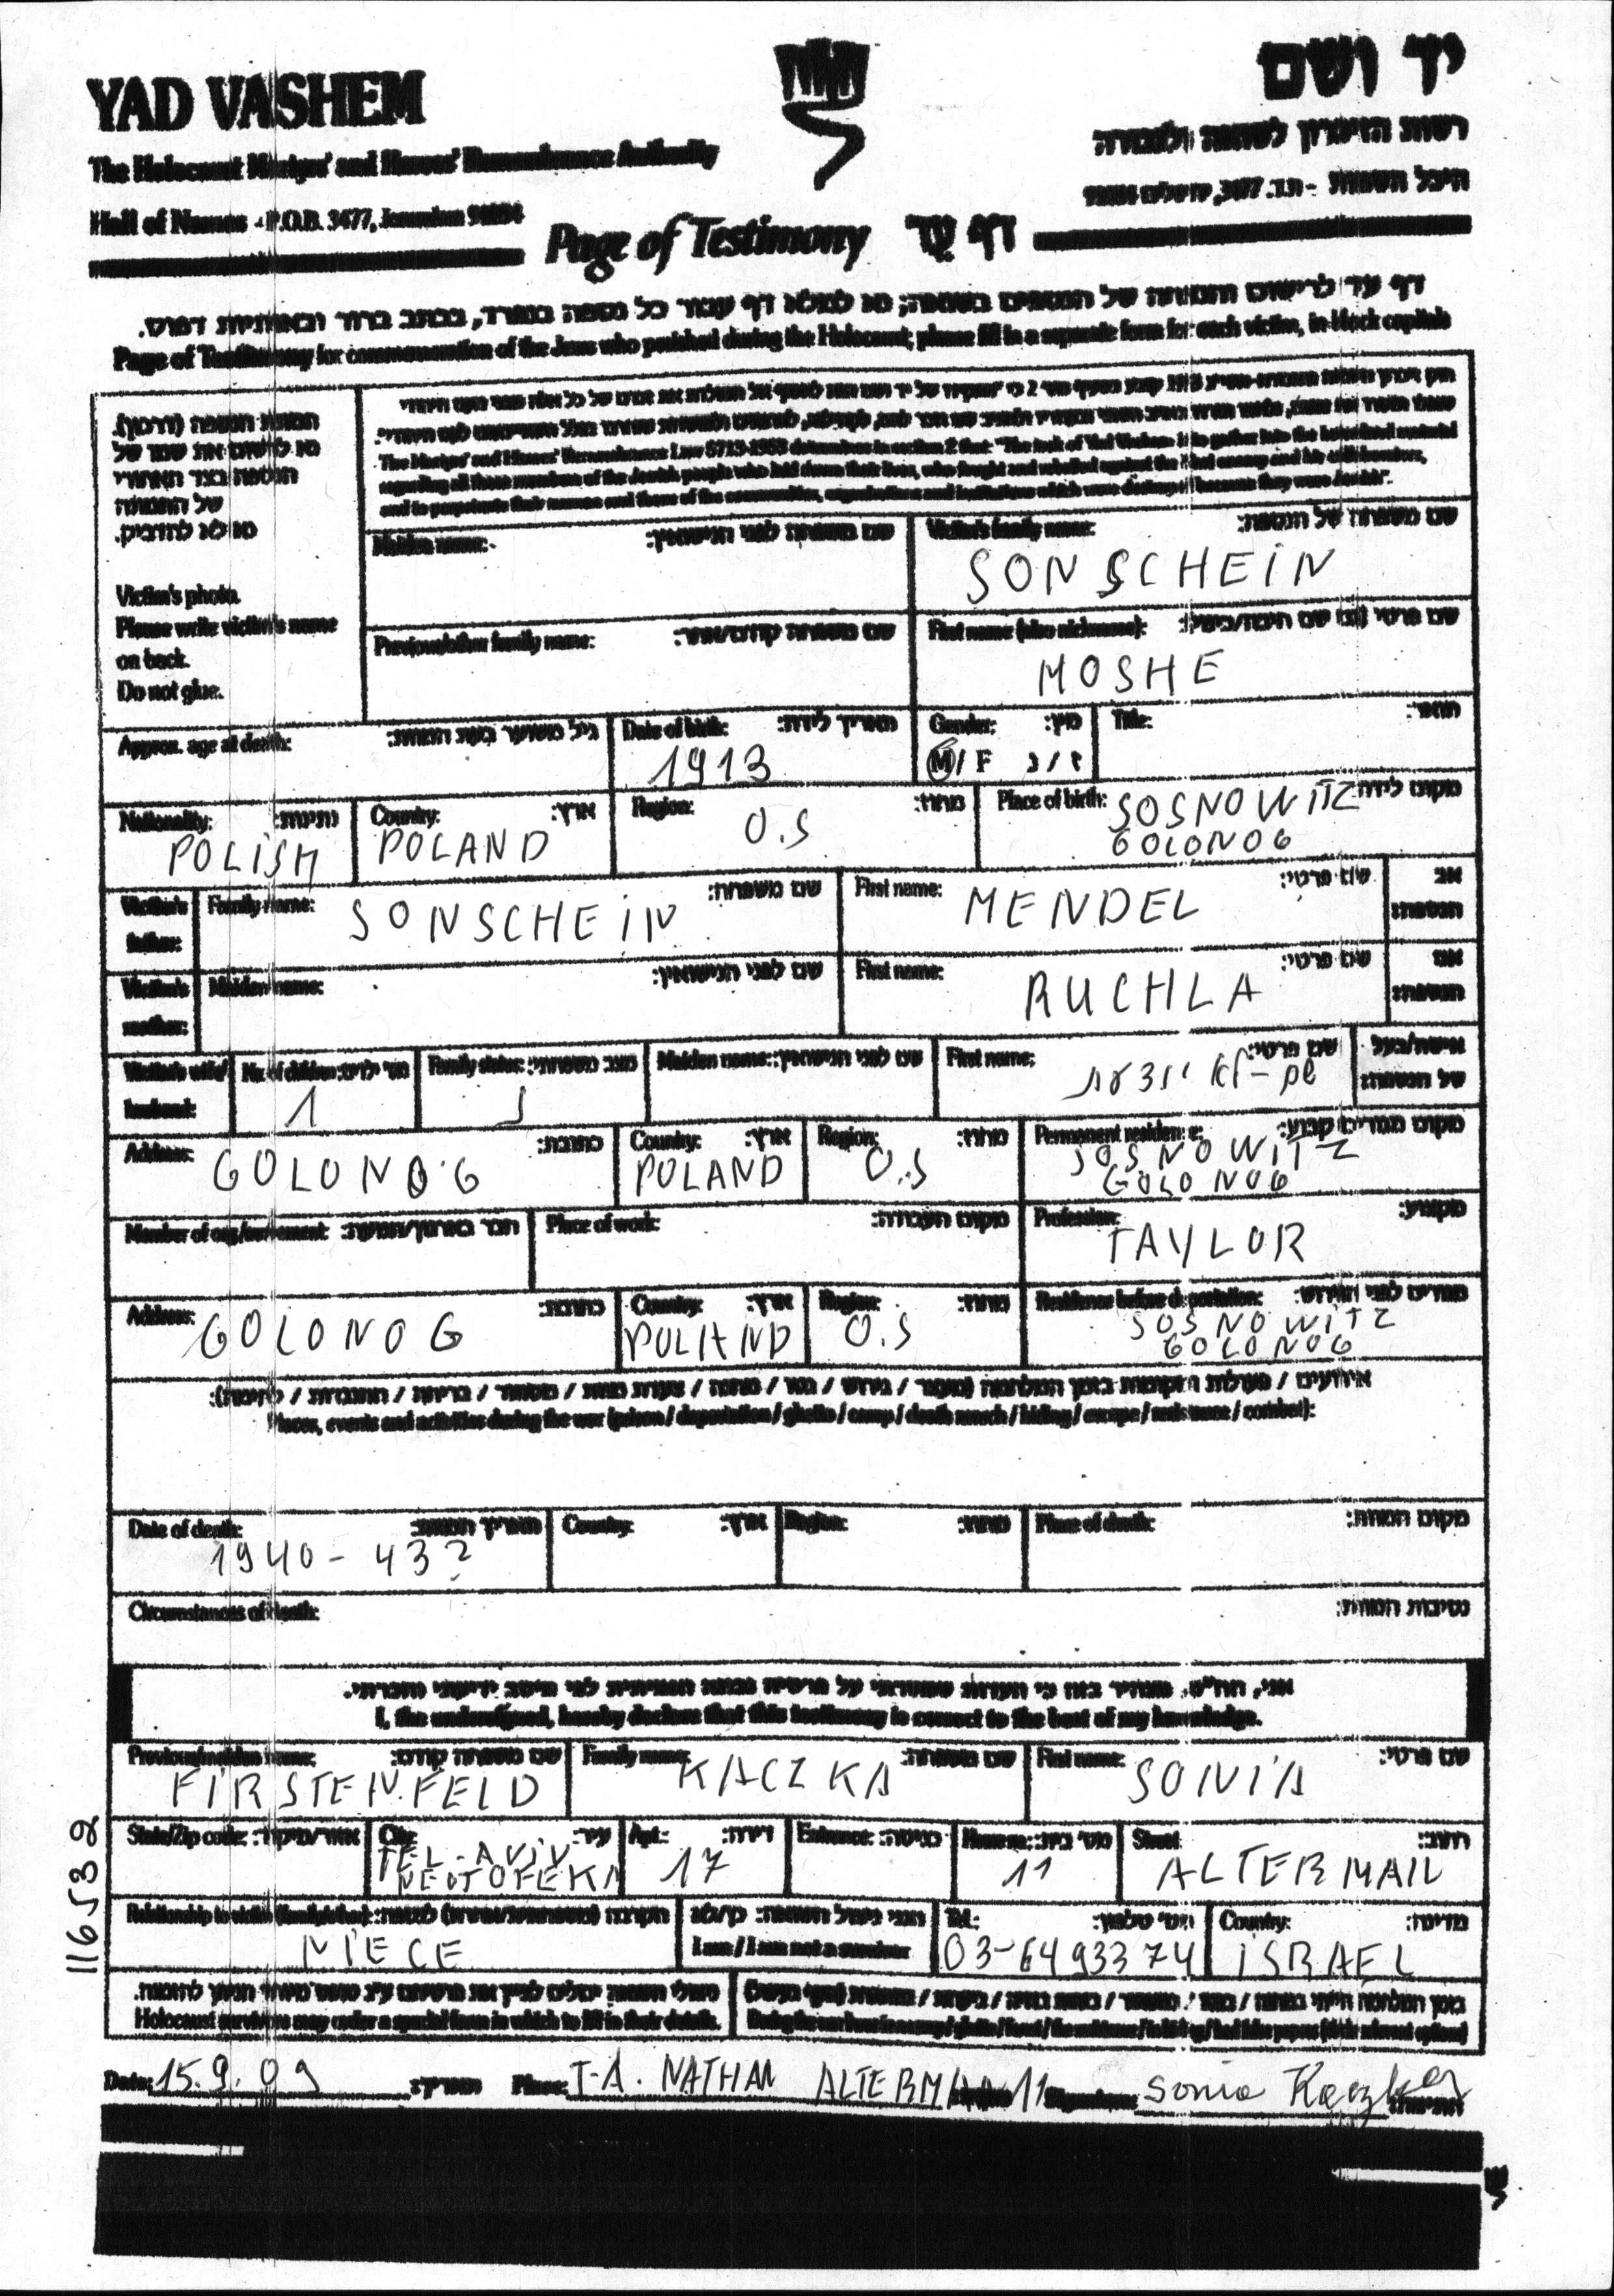 YAD VASHEM
יד ושם
The Holocaust Martyrs' and Heroes' Remembrance Authority
רשות הזיכרון לשואה ולגבורה
Hall of Names - P.O.B. 3477, Jerusalem
היכל השמות - ת.ד. 3477, ירושלים
Page of Testimony דף עד
דף עד לרישום והנצחה של הנספים בשואה; נא למלא דף עבור כל נספה בנפרד, בכתב ברור ובאותיות דפוס.
Page of Testimony for commemoration of the Jews who perished during the Holocaust; please fill in a separate form for each victim, in block capitals
תמונת הנספה (דרכון).
נא לרשום את שמו של
הנספה בצד האחורי
של התמונה
נא לא להדביק.
Victim's photo.
Please write victim's name
on back.
Do not glue.
The Martyrs' and Heroes' Remembrance Law 5713-1953 determines in section 2 that: "The task of Yad Vashem is to gather into the homeland material
regarding all those members of the Jewish people who laid down their lives, who fought and rebelled against the Nazi enemy and his collaborators,
and to perpetuate their names and those of the communities, organizations and institutions which were destroyed because they were Jewish".
Maiden name: שם משפחה לפני הנישואין:
Victim's family name: שם משפחה של הנספה:
SONSCHEIN
Previous/other family name: שם משפחה קודם/אחר:
First name (also nickname): שם פרטי (גם שם חיבה/כינוי):
MOSHE
Approx. age at death: גיל משוער בעת המוות:
Date of birth: תאריך לידה:
1913
Gender: מין:
M / F ז / נ
Title: תואר:
Nationality: נתינות:
POLISH
Country: ארץ:
POLAND
Region: מחוז:
O.S
Place of birth: מקום לידה:
SOSNOWITZ
GOLONOG
Victim's father: Family name: שם משפחה:
SONSCHEIN
First name: שם פרטי:
MENDEL
אב הנספה:
Victim's mother: Maiden name: שם לפני הנישואין:
First name: שם פרטי:
RUCHLA
אם הנספה:
Victim's wife/ husband:
No. of children: מס' ילדים:
1
Family status: מצב משפחתי:
נ
Maiden name: שם לפני הנישואין:
First name: שם פרטי:
שם - לא יודעת
אישה/בעל של הנספה:
Address: כתובת:
GOLONOG
Country: ארץ:
POLAND
Region: מחוז:
O.S
Permanent residence: מקום מגורים קבוע:
SOSNOWITZ
GOLONOG
Member of org./movement: חבר בארגון/תנועה:
Place of work: מקום העבודה:
Profession: מקצוע:
TAYLOR
Address: כתובת:
GOLONOG
Country: ארץ:
POLAND
Region: מחוז:
O.S
Residence before deportation: מגורים לפני הגירוש:
SOSNOWITZ
GOLONOG
אירועים / פעולות ומקומות בזמן המלחמה (מעצר / גירוש / גטו / מחנה / צעדת מוות / מסתור / בריחה / התנגדות / לחימה):
Places, events and activities during the war (prison / deportation / ghetto / camp / death march / hiding / escape / resistance / combat):
Date of death: תאריך המוות:
1940 - 43?
Country: ארץ:
Region: מחוז:
Place of death: מקום המוות:
Circumstances of death: נסיבות המוות:
אני, הח"מ, מצהיר בזה כי העדות שמסרתי על פרטיה נכונה ואמיתית לפי מיטב ידיעתי והכרתי.
I, the undersigned, hereby declare that this testimony is correct to the best of my knowledge.
Previous/maiden name: שם משפחה קודם:
FIRSTENFELD
Family name: שם משפחה:
KACZKA
First name: שם פרטי:
SONIA
State/Zip code: אזור/מיקוד:
City: עיר:
TEL-AVIV
Apt.: דירה:
17
Entrance: כניסה:
House no.: מס' בית:
11
Street: רחוב:
ALTERMAN
Relationship to victim (family/other): הקרבה (משפחתית/אחרת) לנספה:
NIECE
הנני ניצול השואה: כן/לא
I am / I am not a survivor
Tel.: מס' טלפון:
03-6493374
Country: מדינה:
ISRAEL
Holocaust survivors may order a special form in which to fill in their details.
116532
Date: 15.9.09 תאריך:
Place: T-A. NATHAN ALTERMAN 11
Signature: Sonia Kaczka חתימה: